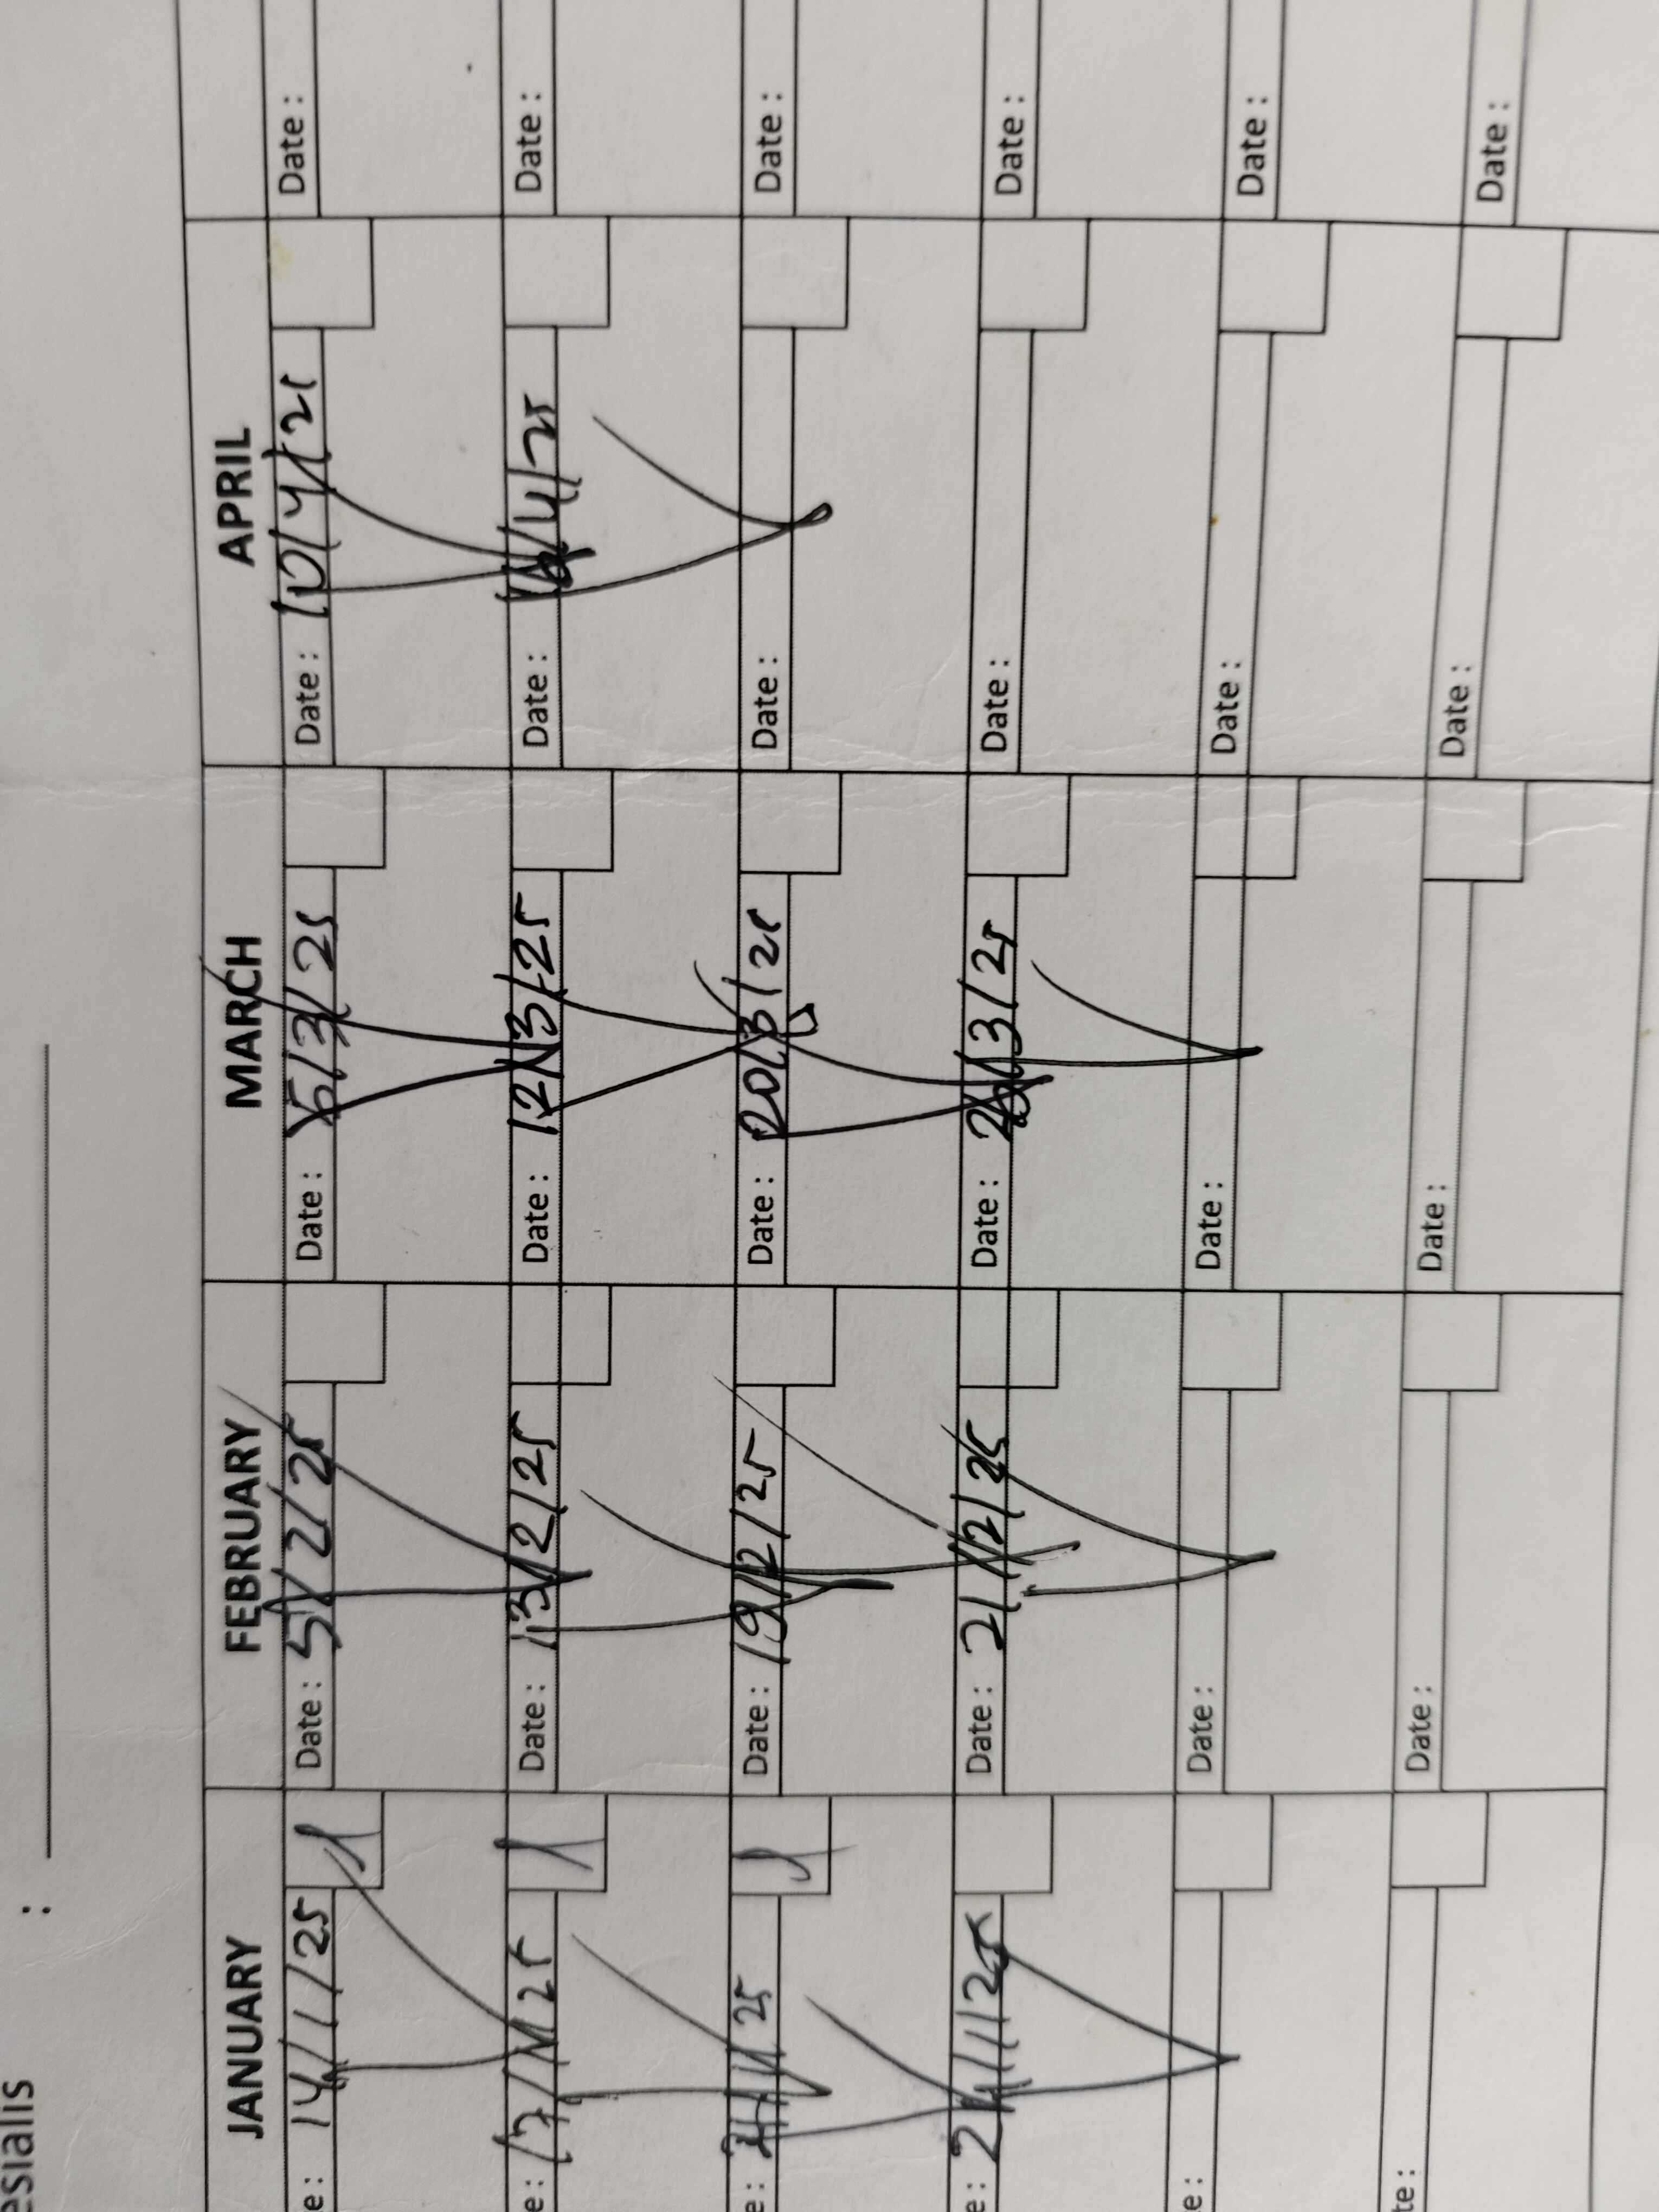 esialis :
JANUARY FEBRUARY MARCH APRIL
e: 14/1/25 Date: 5/2/25 Date: 5/3/25 Date: 10/4/25 Date:
e: 17/1/25 Date: 13/2/25 Date: 12/3/25 Date: /4/25 Date:
e: 21/1/25 Date: 19/2/25 Date: 20/3/25 Date: Date:
e: 24/1/25 Date: 21/2/25 Date: /3/25 Date: Date:
e: Date: Date: Date: Date:
te: Date: Date: Date: Date: